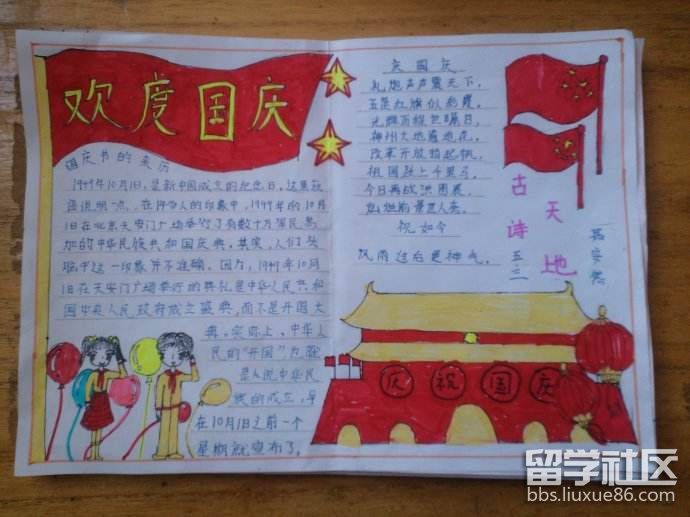 欢度国庆
国庆节的来历
1949年10月1日,是新中国成立的纪念日。这里应
告说明一点,在许多人的印象中,1949年的10月
1日在北京天安门广场举行了有数十万军民参
加的中华人民共和国国庆典。其实,人们头
脑中这一印象并不准确。因为,1949年10月
1日在天安门广场举行的典礼是中华人民共和
国中央人民政府成立盛典,而不是开国大
典。实际上,中华人
民的"开国",
是人说中华民
族的成立,早
在10月1日之前一个
星期就宣布了。
国庆
礼炮声声震天下,
五星红旗似彩霞。
神州大地遍地花。
改革开放
祖国跃上千里马。
今日再战
祝如今
风雨过后更神气。
古诗
天地
五三
庆祝国庆
留学社区
bbs.liuxue86.com